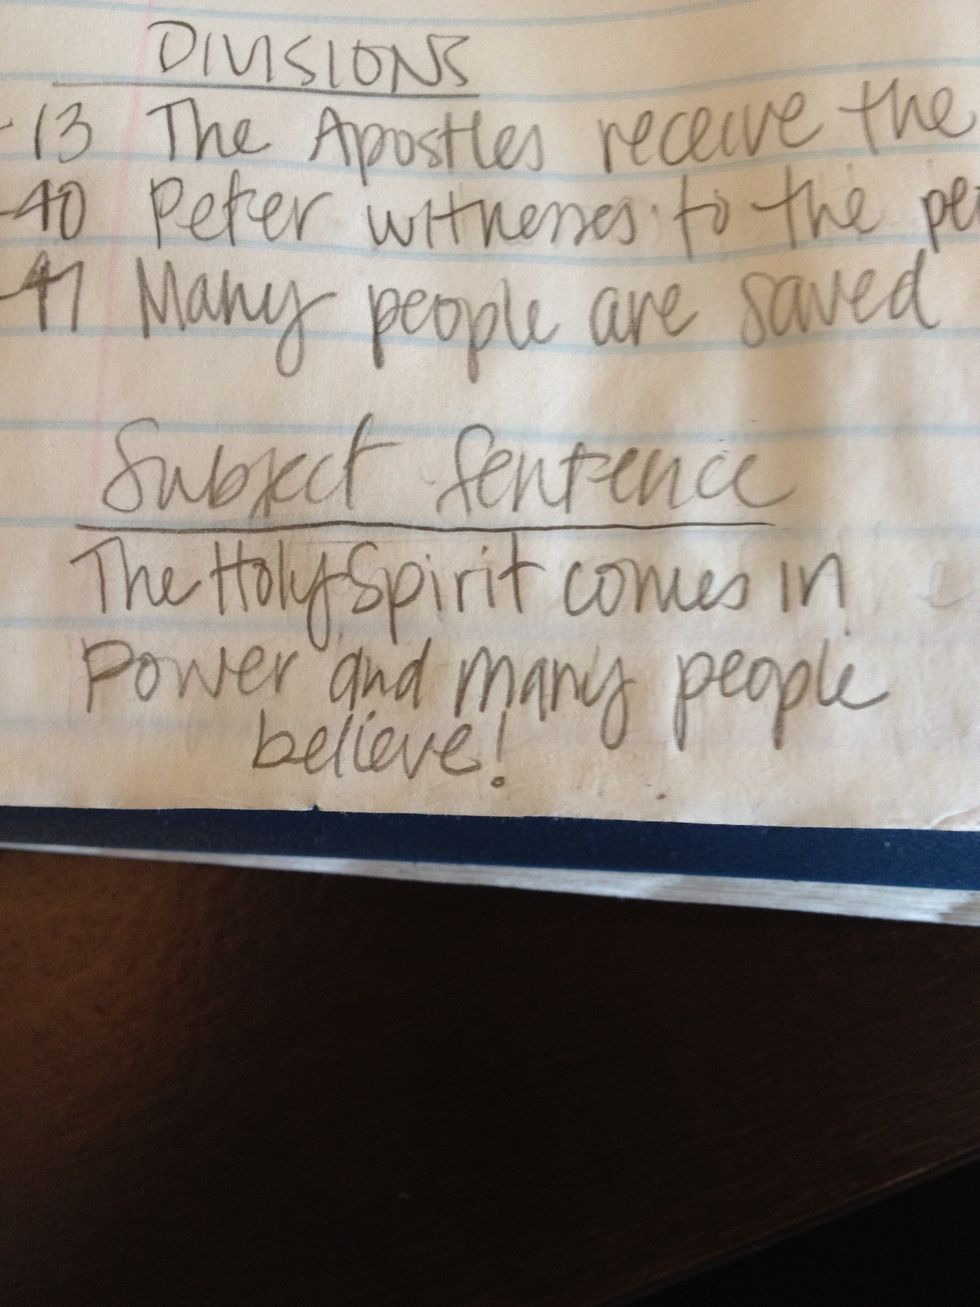 DIVISIONS
-13 The Apostles receive the
-40 Peter witnesses to the pe
-47 Many people are saved
Subject Sentence
The Holy Spirit comes in
Power and many people
believe!